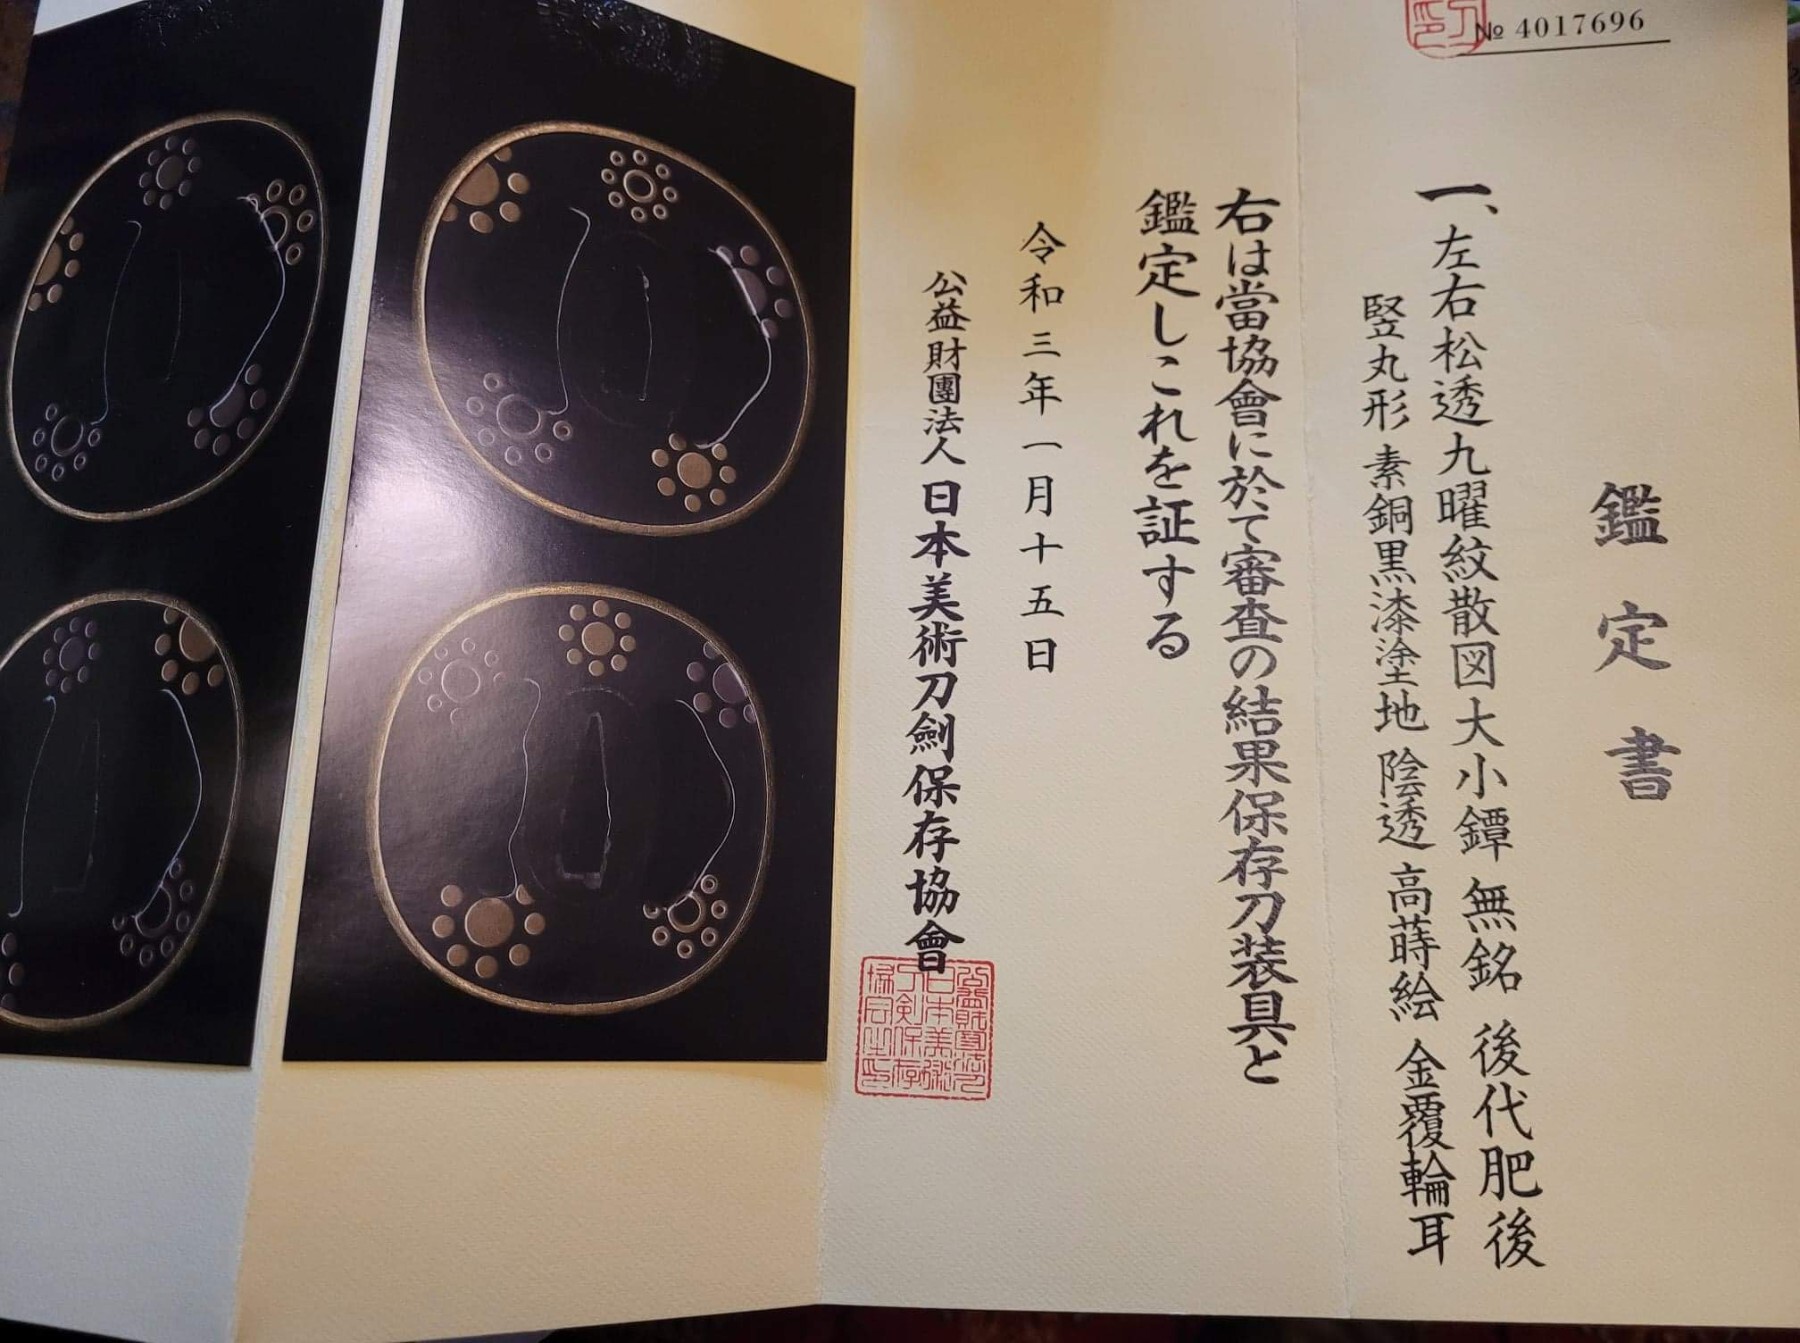 № 4017696
鑑定書
一、左右松透九曜紋散図大小鐔 無銘 後代肥後
竪丸形 素銅黒漆塗地 陰透 高蒔絵 金覆輪耳
右は當協會に於て審査の結果保存刀装具と
鑑定しこれを証する
令和三年一月十五日
公益財團法人 日本美術刀劍保存協會
公益財團法人
日本美術
刀剣保存
協会之印